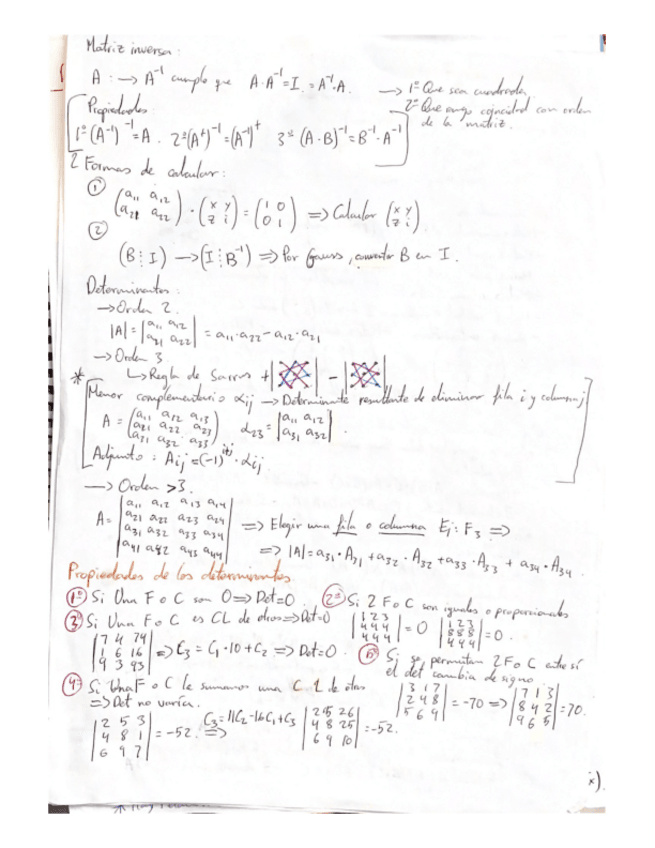 Matriz inversa:
A: → A⁻¹ cumple que A·A⁻¹=I = A⁻¹·A. → 1º Que sea cuadrada
2º Que coincidad con orden de la matriz.
Propiedades
1º (A⁻¹)⁻¹=A. 2º (Aᵗ)⁻¹=(A⁻¹)ᵗ 3º (A·B)⁻¹=B⁻¹·A⁻¹
2 Formas de calcular:
① (a₁₁ a₁₂ / a₂₁ a₂₂) · (x y / z i) = (1 0 / 0 1) ⇒ Calcular (x y / z i)
② (B ⋮ I) → (I ⋮ B⁻¹) ⇒ Por Gauss, convertir B en I.
Determinantes:
→ Orden 2.
|A| = |a₁₁ a₁₂ / a₂₁ a₂₂| = a₁₁·a₂₂ - a₁₂·a₂₁
→ Orden 3
* ↳ Regla de Sarrus + | | - | |
Menor complementario αᵢⱼ → Determinante resultante de eliminar fila i y columna j
A = (a₁₁ a₁₂ a₁₃ / a₂₁ a₂₂ a₂₃ / a₃₁ a₃₂ a₃₃) α₂₃ = |a₁₁ a₁₂ / a₃₁ a₃₂|.
Adjunto: Aᵢⱼ = (-1)ⁱ⁺ʲ · αᵢⱼ
→ Orden >3.
A = |a₁₁ a₁₂ a₁₃ a₁₄ / a₂₁ a₂₂ a₂₃ a₂₄ / a₃₁ a₃₂ a₃₃ a₃₄ / a₄₁ a₄₂ a₄₃ a₄₄| ⇒ Elegir una fila o columna Ej: F₃ ⇒
⇒ |A| = a₃₁·A₃₁ + a₃₂·A₃₂ + a₃₃·A₃₃ + a₃₄·A₃₄.
Propiedades de los determinantes
1º Si Una F o C son 0 ⇒ Det=0
2º Si 2 F o C son iguales o proporcionales
|1 2 3 / 4 4 4 / 4 4 4| = 0 |1 2 3 / 8 8 8 / 4 4 4| = 0.
3º Si Una F o C es CL de otros ⇒ Det=0
|7 4 74 / 1 6 16 / 9 3 93| ⇒ C₃ = C₁·10 + C₂ ⇒ Det=0.
Si se permutan 2 F o C entre sí
el det cambia de signo
|3 1 7 / 2 4 8 / 5 6 9| = -70 ⇒ |7 1 3 / 8 4 2 / 9 6 5| = 70.
4º Si Una F o C le sumamos una C L de otras
⇒ Det no varía.
|2 5 3 / 4 8 1 / 6 9 7| = -52. C₃ = 11C₂ - 16C₁ + C₃ ⇒ |2 5 26 / 4 8 25 / 6 9 10| = -52.
x).